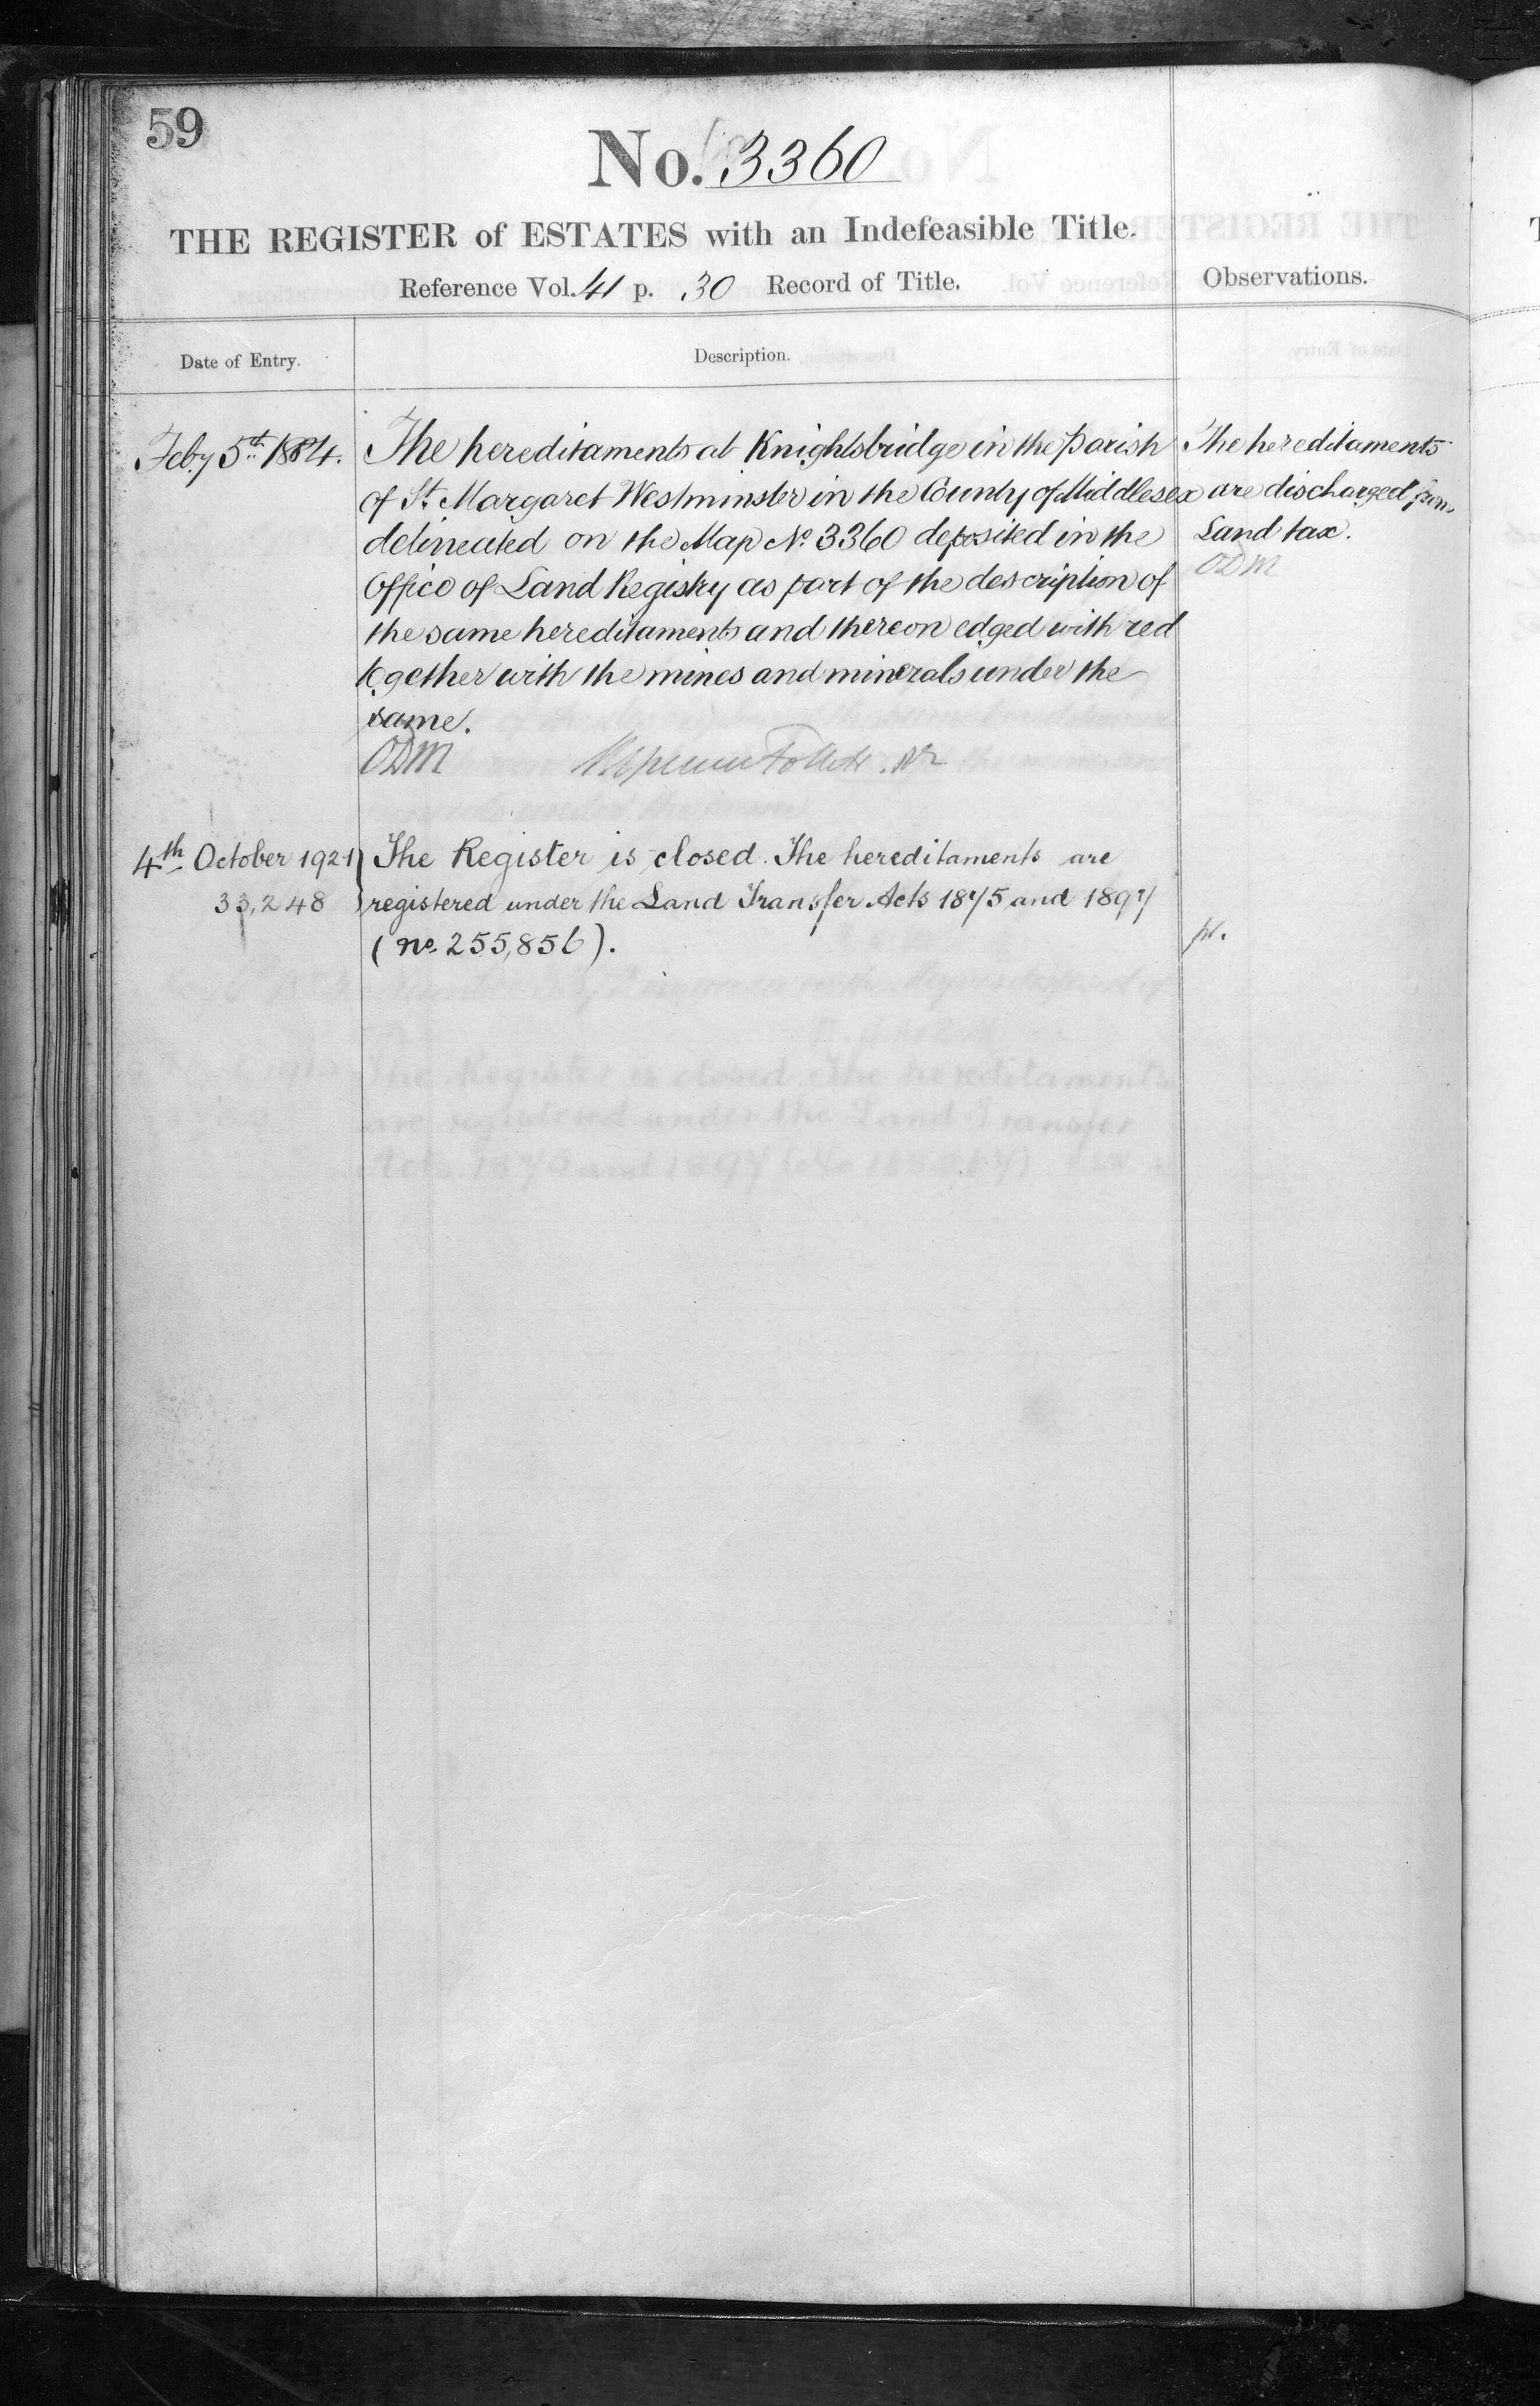 59
No. 3360
THE REGISTER of ESTATES with an Indefeasible Title.
Reference Vol. 41 p. 30 Record of Title.
Observations.
Date of Entry.
Description.
Feb.y 5th 1884.
The hereditaments at Knightsbridge in the Parish
of St. Margaret Westminster in the County of Middlesex
delineated on the Map No. 3360 deposited in the
Office of Land Registry as part of the description of
the same hereditaments and thereon edged with red
together with the mines and minerals under the
same.
ODM
The hereditaments
are discharged from
Land tax.
ODM
4th October 1921
33,248
The Register is closed. The hereditaments are
registered under the Land Transfer Acts 1875 and 1897
(no. 255,856).